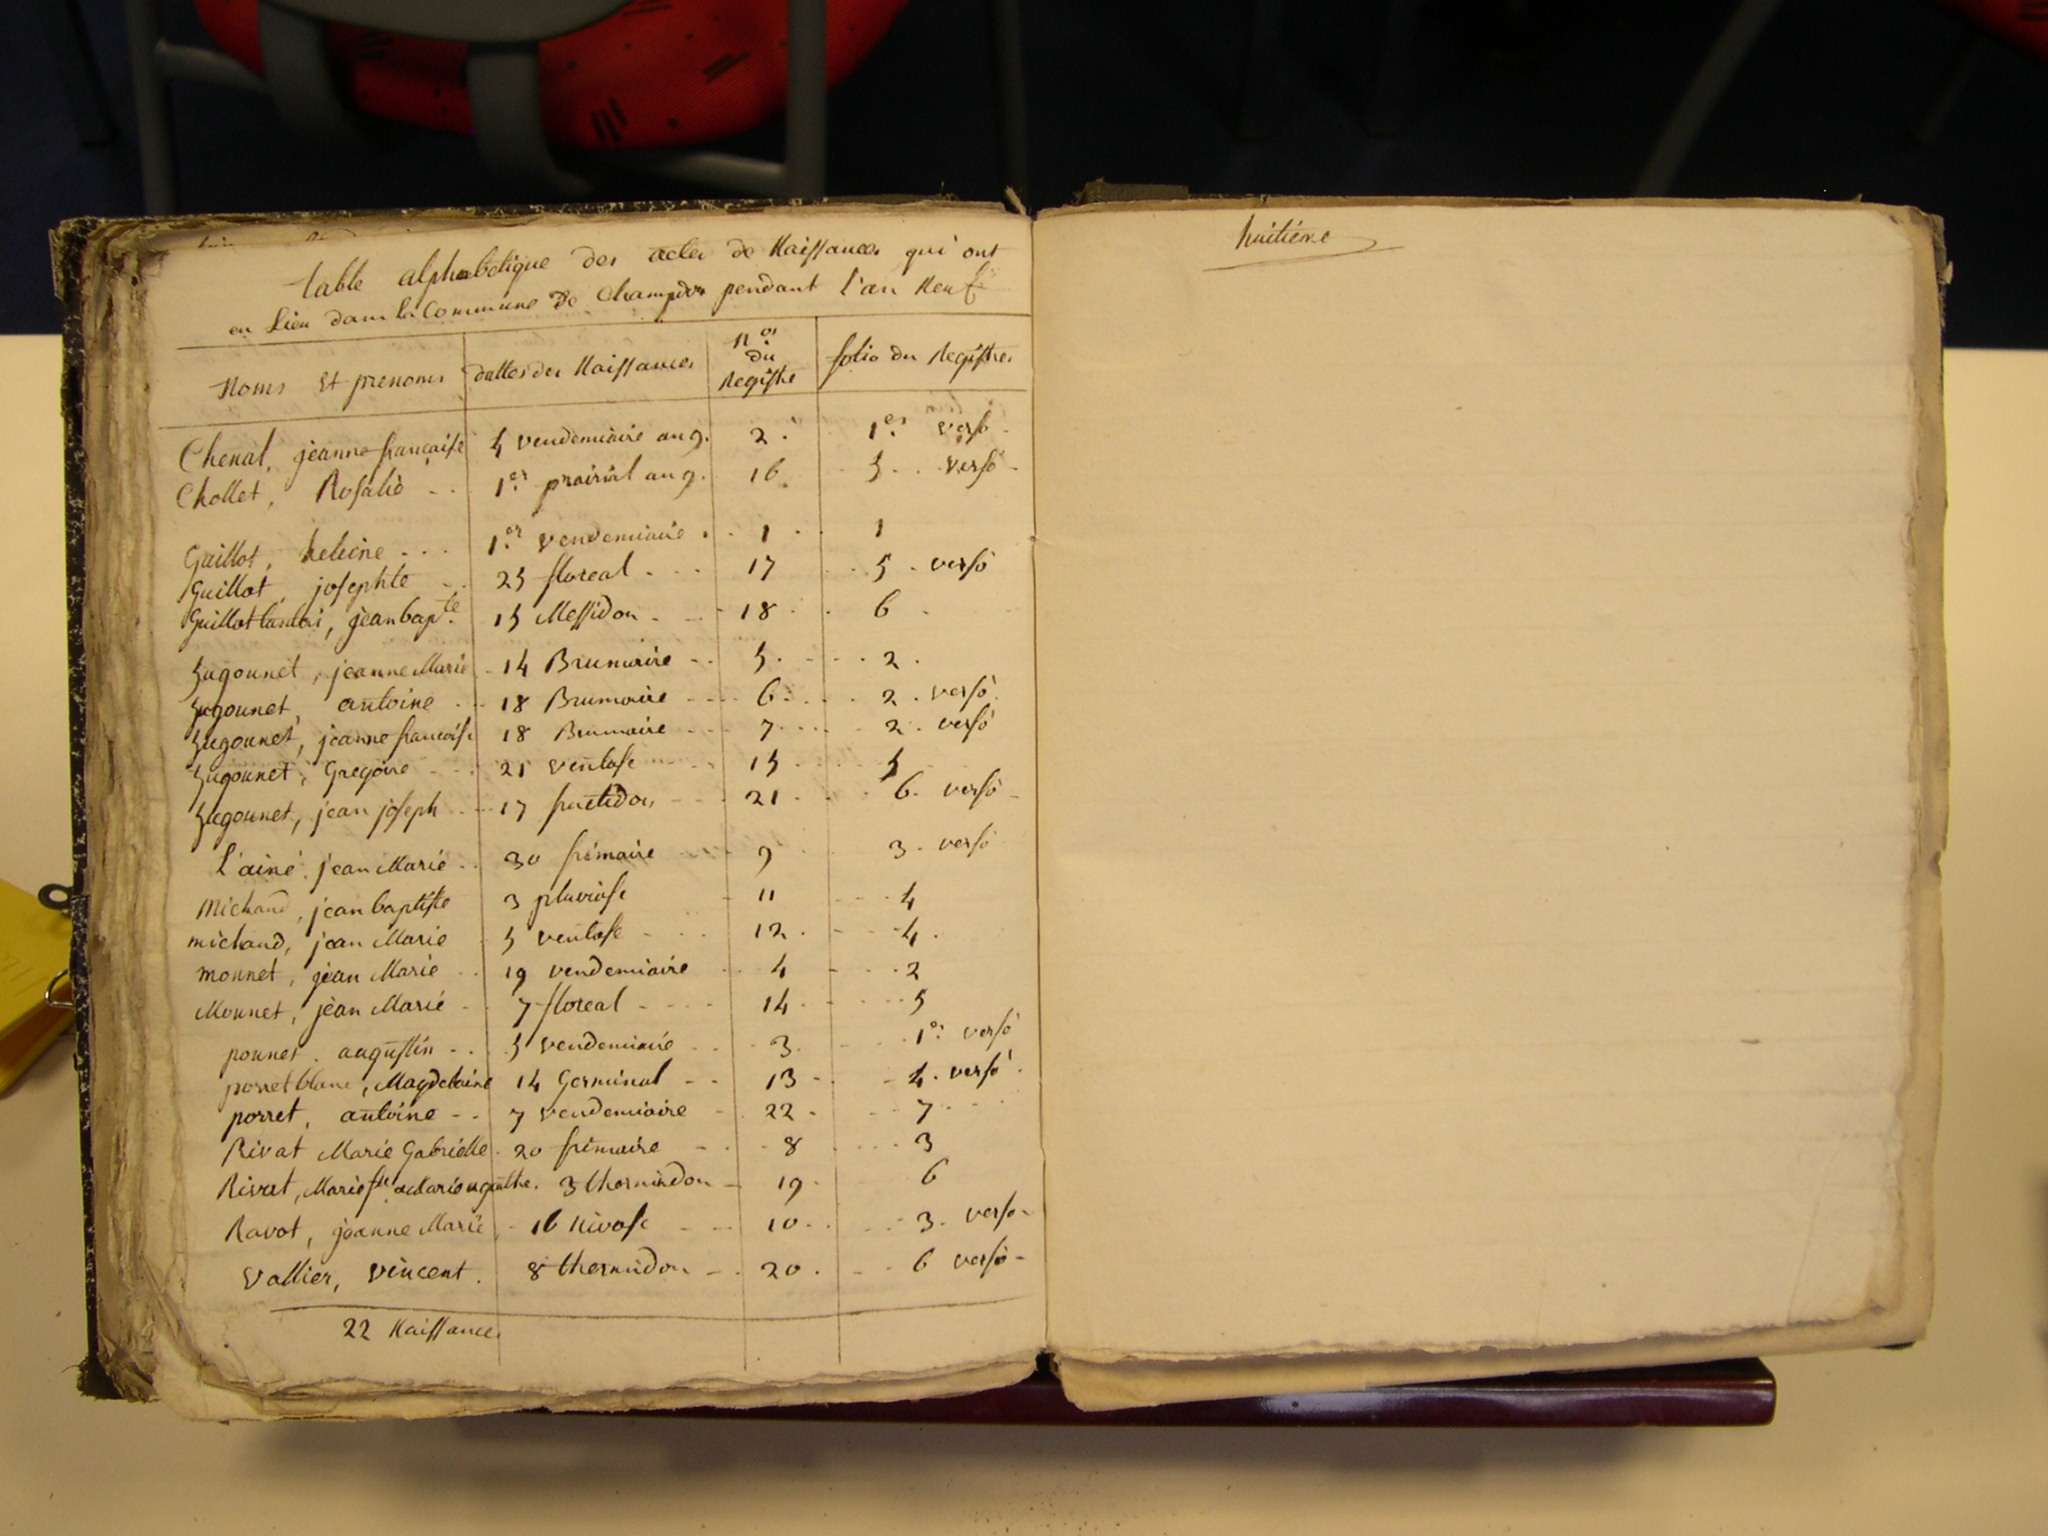 table alphabetique des actes de Naissances qui ont
eu Lieu dans la Commune de Champdor pendant l'an Neuf
Noms Et prenoms dattes des Naissances N.os du Registre folio du Registre
Chenal, jeanne francaise 5 vendemiaire an 9. 2. 1er verso
Chollet, Rosalie 1er prairial an 9. 16. 5 verso
Guillot, heleine 1er vendemiaire 1 1
Guillot, josephte 25 floreal 17 5 verso
Guillot, jean bapte. 15 Messidor 18 6
hugonnet, jeanne Marie 14 Brumaire 5 2
hugonnet, antoine 18 Brumaire 6 2 verso
hugonnet, jeanne francoise 18 Brumaire 7 2 verso
hugonnet, Gregoire 21 ventose 15 5
hugonnet, jean joseph 17 fructidor 21 6 verso
L'ainé jean Marie 30 frimaire 9 3 verso
Michaud, jean baptiste 3 pluviose 11 4
michaud, jean Marie 5 ventose 12 4
monnet, jean Marie 19 vendemiaire 4 2
Monnet, jean Marie 7 floreal 14 5
ponnet. augustin 5 vendemiaire 3 1er verso
porret blanc, Magdelaine 14 Germinal 13 4 verso
porret, antoine 7 vendemiaire 22 7
Rivat Marie Gabrielle 20 frimaire 8 3
Rivat, 3 thermidor 19 6
Ravot, jeanne Marie 16 Nivose 10 3 verso
Vallier, vincent. 8 thermidor 20 6 verso
22 Naissances
huitiéme